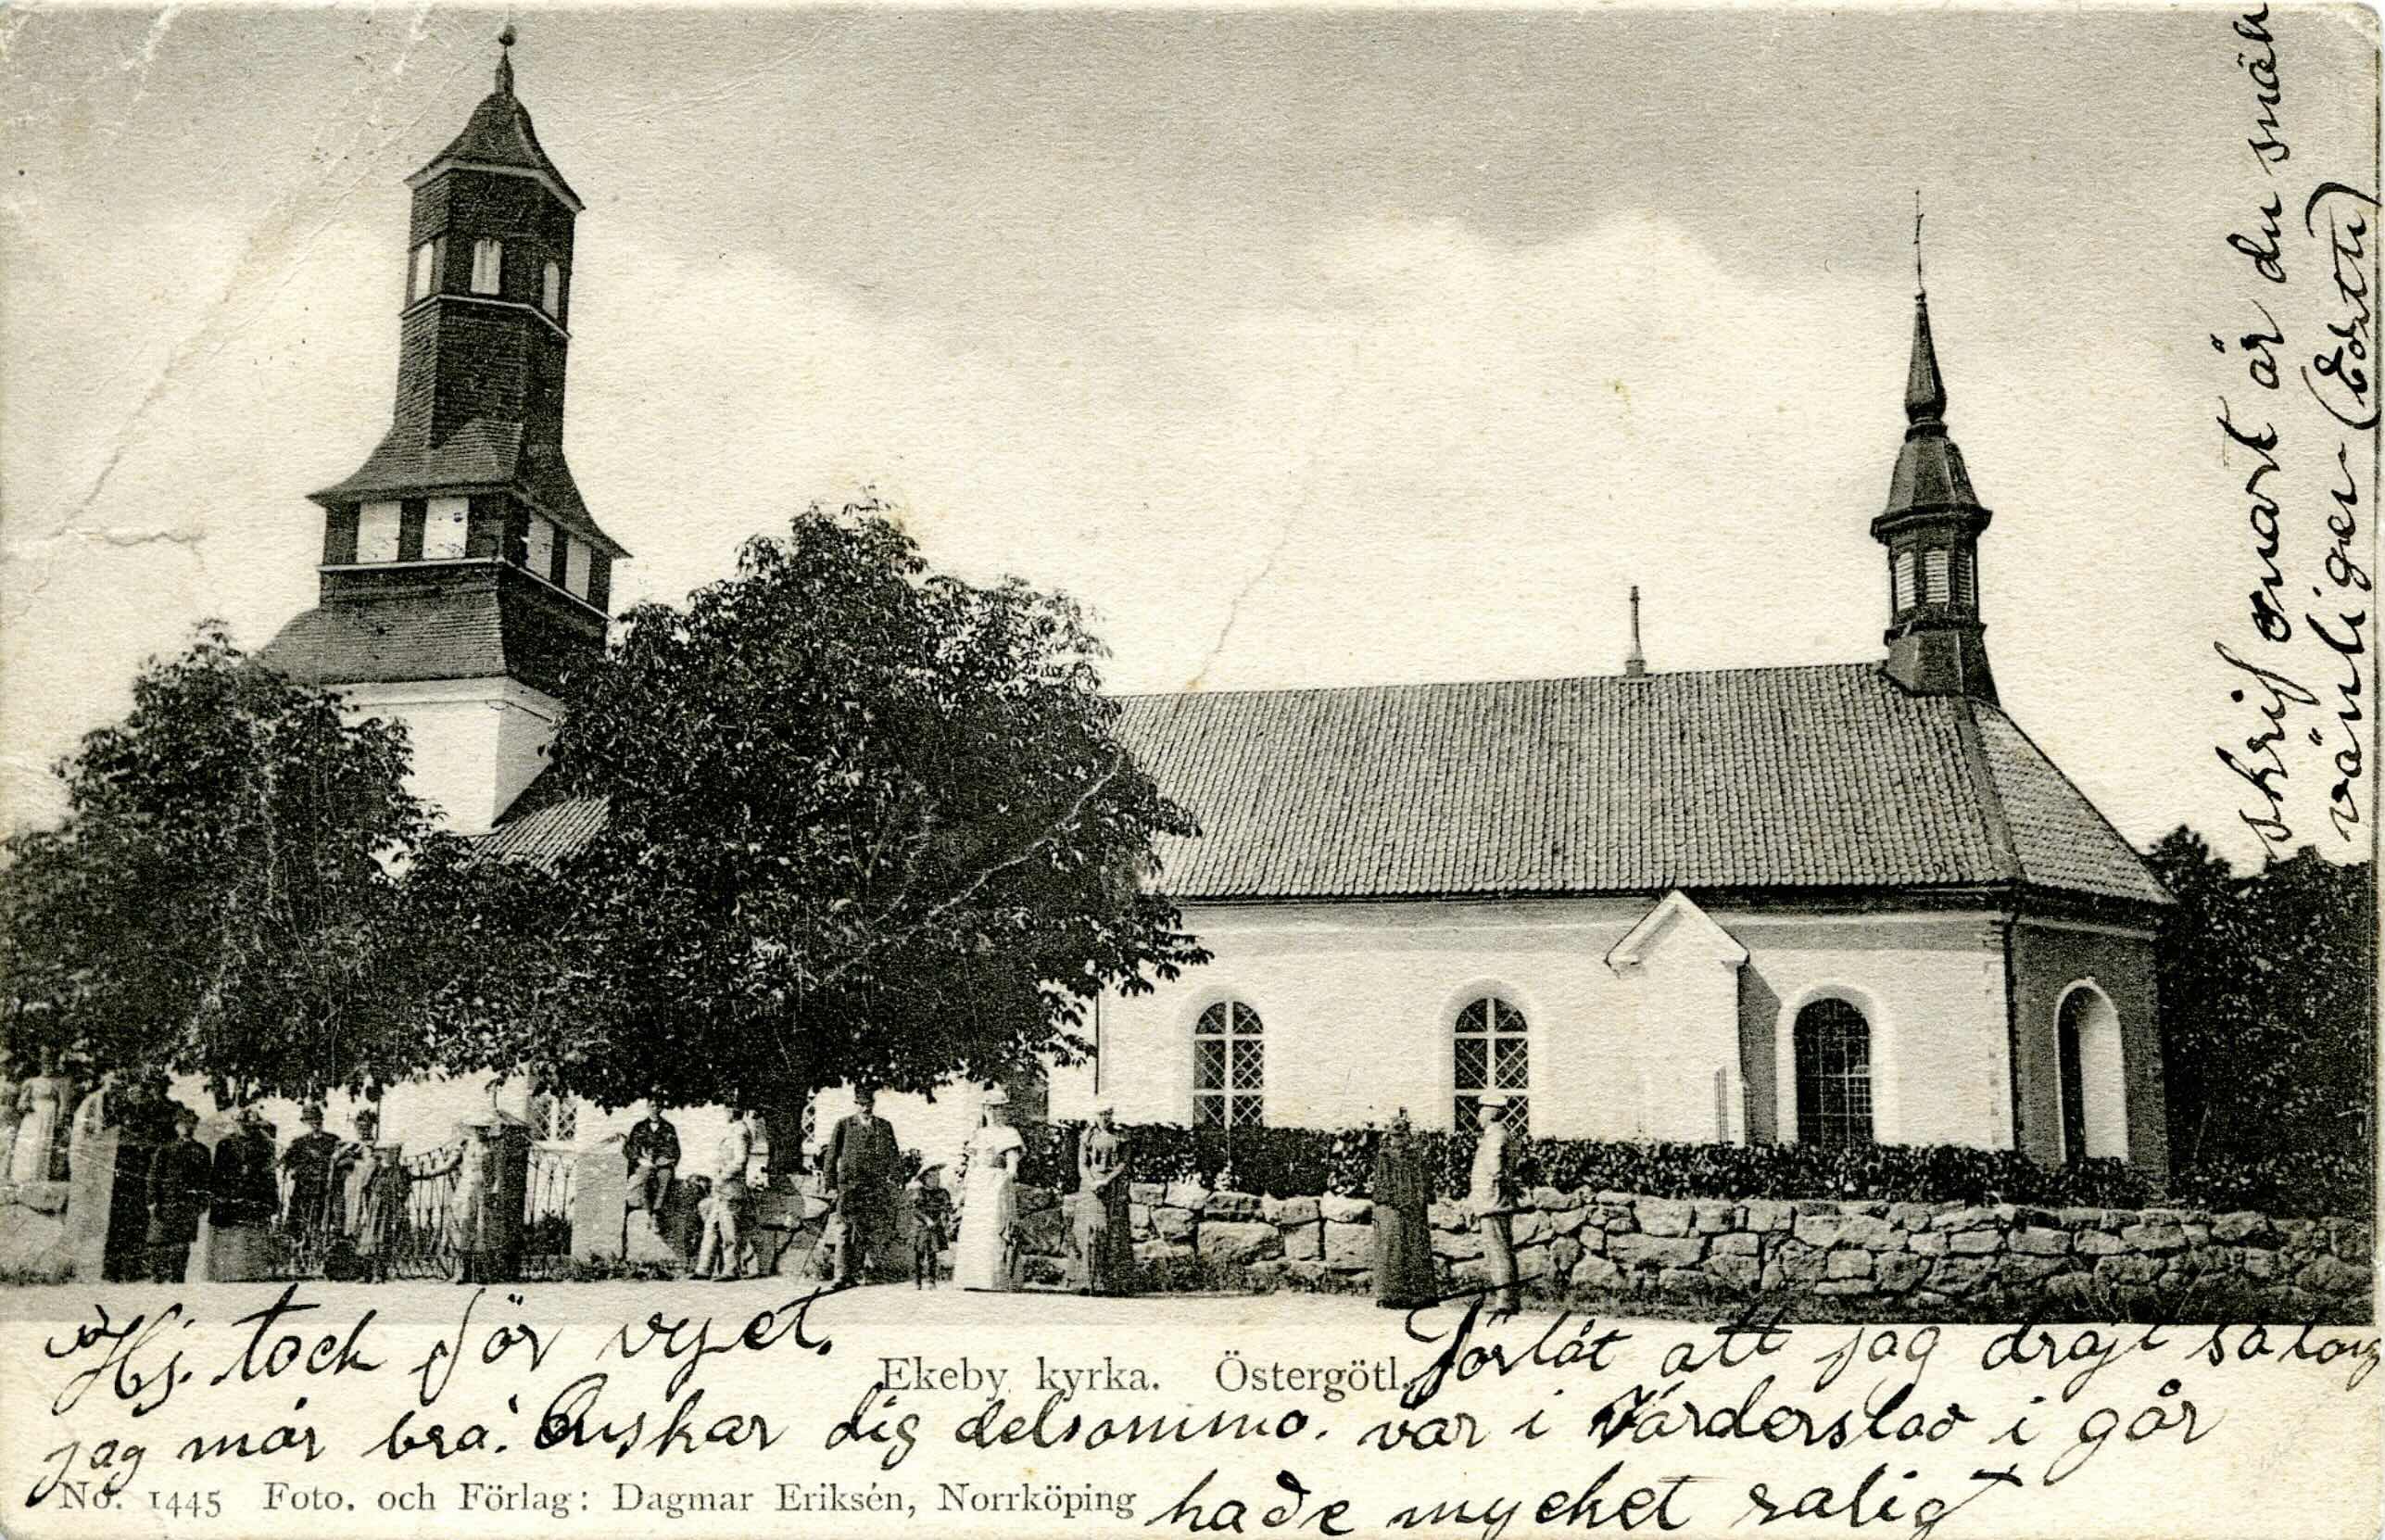 Hj. tack för vyet. Förlåt att jag dröjt så lång
Ekeby kyrka. Östergötl.
jag mår bra. Önskar dig delsamma. var i Vårderslad i går
No. 1445 Foto. och Förlag: Dagmar Eriksén, Norrköping
hade mycket roligt
skrif snart är du snäll
vänligen